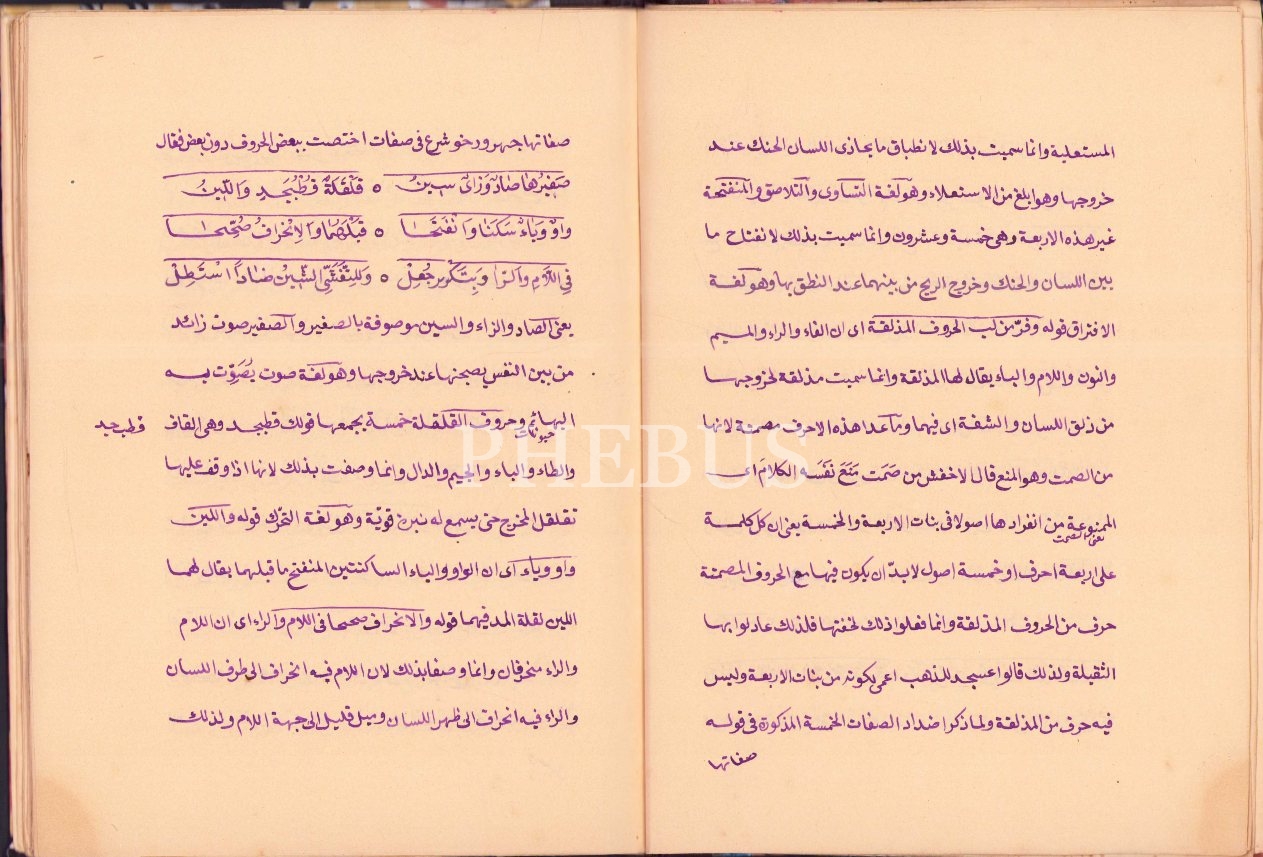 المستعلية وانما سميت بذلك لانطباق ما يحاذى اللسان الحنك عند
خروجها وهو ابلغ من الاستعلاء وهو لغة التساوى والتلاصق والمنفتحة
غير هذه الاربعة وهى خمسة وعشرون وانما سميت بذلك لانفتاح ما
بين اللسان والحنك وخروج الريح من بينهما عند النطق بها وهو لغة
الافتراق قوله وفرّ من لب الحروف المذلقة اى ان الفاء والراء والميم
والنون واللام والباء يقال لها المذلقة وانما سميت مذلقة لخروجها
من ذلق اللسان والشفة اى فيهما وما عدا هذه الاحرف مصمتة لانها
من الصمت وهو المنع قال الاخفش من صَمَت مَنَعَ نَفَسَه الكلامَ اى
الممنوعة من انفرادها اصولا فى بنات الاربعة والخمسة يعنى ان كل كلمة
على اربعة احرف او خمسة اصول لابدّ ان يكون فيها مع الحروف المصمتة
حرف من الحروف المذلقة وانما فعلوا ذلك لخفتها فلذلك عادلوا بها
الثقيلة ولذلك قالوا عسجد للذهب اعمى لكونه من بنات الاربعة وليس
فيه حرف من المذلقة ولما ذكر اضداد الصفات الخمسة المذكورة فى قوله
صفاتها
صفاتها جهر ورخو شرع فى صفات اختصت ببعض الحروف دون بعض فقال
صَفِيرُهَا صَادٌ وَزَاىٌ سِينُ ه قَلْقَلَةٌ قُطْبُجَدٍ وَاللِّينُ
وَاوٌ وَيَاءٌ سَكَنَا وَانْفَتَحَا ه قَبْلَهُمَا وَالِانْحِرَافُ صُحِّحَا
فِى اللَّامِ وَالرَّا وَبِتَكْرِيرٍ جُعِلْ ه وَلِلتَّفَشِّى الشِّينُ ضَادًا اسْتَطِلْ
يعنى الصاد والزاء والسين موصوفة بالصفير والصفير صوت زائد
من بين النفس يصحبها عند خروجها وهو لغة صوت يُصَوِّت به
البهائم وحروف القلقلة خمسة يجمعها قولك قطبجد وهى القاف
حيوانات
قطب جد
والطاء والباء والجيم والدال وانما وصفت بذلك لانها اذا وقف عليها
تقلقل المخرج حتى يسمع له نبرة قويّة وهو لغة التحرّك قوله واللين
واو وياء اى ان الواو والياء الساكنتين المنفتح ما قبلهما يقال لهما
اللين لقلة المد فيهما قوله والانحراف صححا فى اللام والراء اى ان اللام
والراء منحرفان وانما وصفا بذلك لان اللام فيه انحراف الى طرف اللسان
والراء فيه انحراف الى ظهر اللسان وميل قليل الى جهة اللام ولذلك
PHEBUS